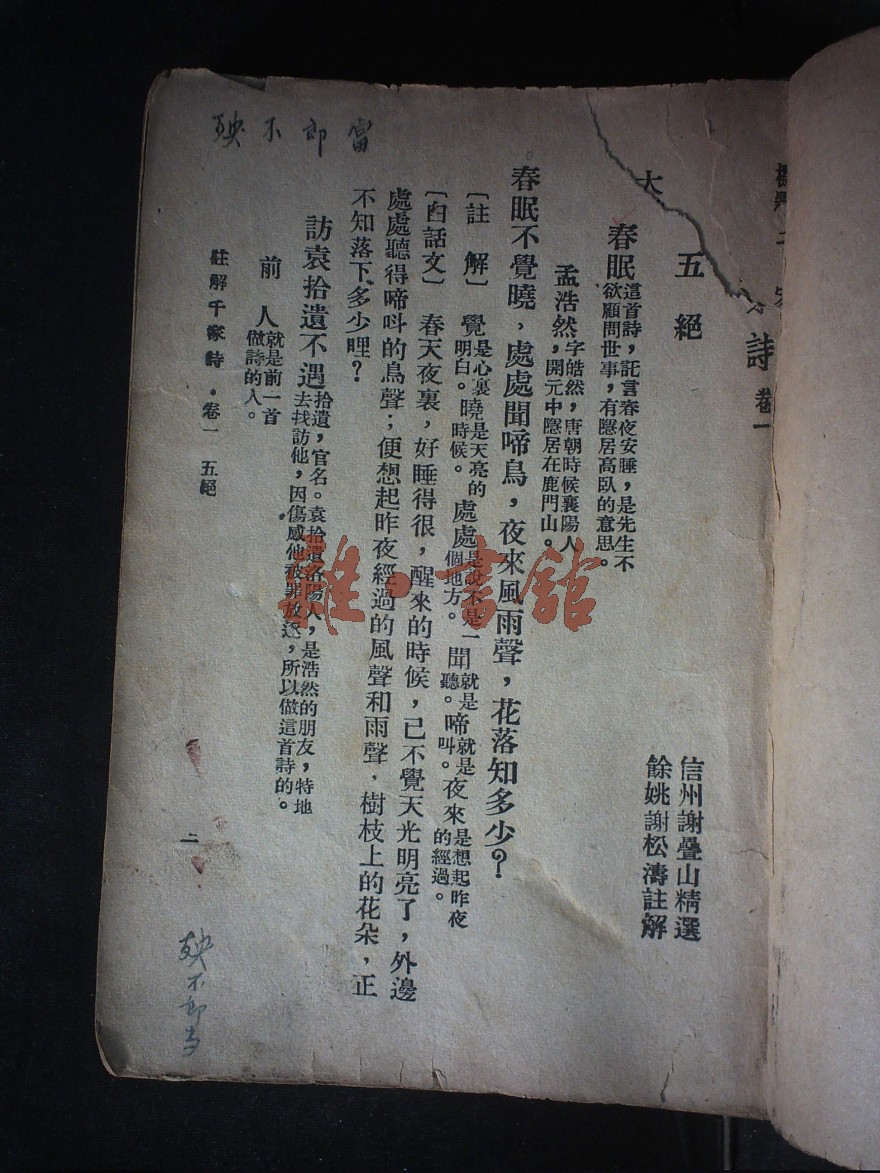 詩 卷一
信州謝疊山精選
餘姚謝松濤註解
五絕
春眠 這首詩,託言春夜安睡,是先生不欲顧問世事,有隱居高臥的意思。
孟浩然,字皓然,唐朝時候襄陽人,開元中隱居在鹿門山。
春眠不覺曉,處處聞啼鳥,夜來風雨聲,花落知多少?
〔註 解〕 覺是心裏明白。曉是天亮的時候。處處是說不是一個地方。聞就是聽。啼就是叫。夜來是想起昨夜的經過。
〔白話文〕 春天夜裏,好睡得很,醒來的時候,已不覺天光明亮了,外邊
處處聽得啼呌的鳥聲;便想起昨夜經過的風聲和雨聲,樹枝上的花朵,正
不知落下多少哩?
訪袁拾遺不遇 拾遺,官名。袁拾遺洛陽人,是浩然的朋友,特地去找訪他,因傷感他被罪放逐,所以做這首詩的。
前 人 就是前一首做詩的人。
註解千家詩.卷一 五絕
二
雜·書館